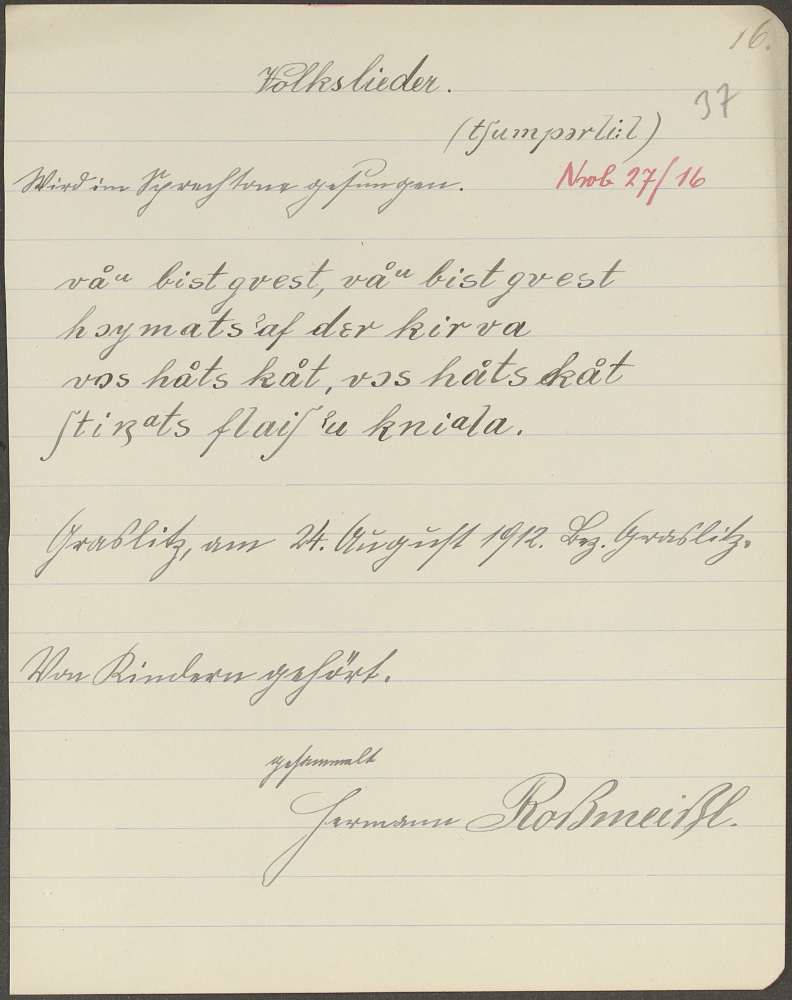 16.
Volkslieder.
37
(tʃumpɔrli:l)
Wird im Sprechtone gesungen.
27/16
våᵘ bist gvest, våᵘ bist gvest
hɔymats ʾaf dɛr kirva
vɔs håts kåt, vɔs håts kåt
ʃtiʀᵃts flaiʃ ʾu kniᵃla.
Graslitz, am 24. August 1912. Bez. Graslitz.
Von Kindern gehört.
gesammelt
Hermann Roßmeißl.